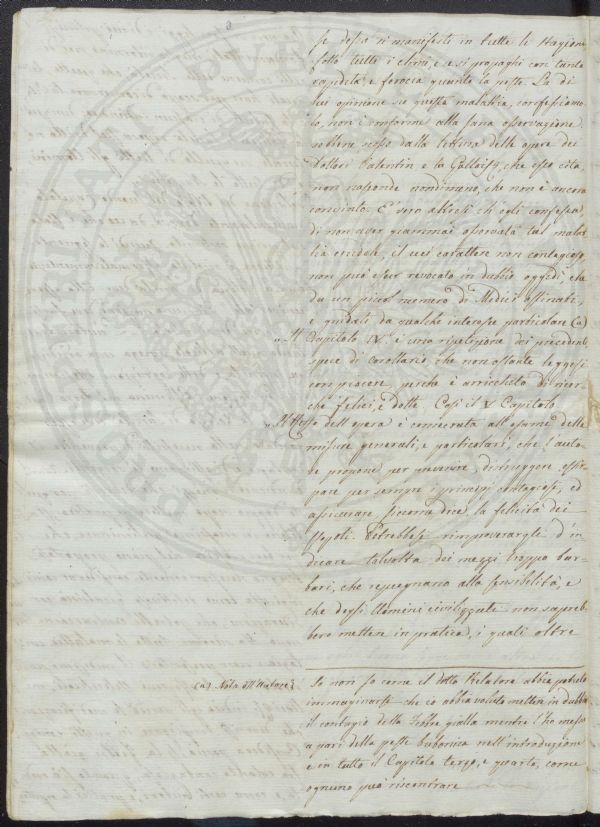 se dessa si manifesti in tutte le stagioni
sotto tutti i climi, e si propaghi con tanta
rapidità, e ferocia quanto la peste. La di
lui opinione su questa malattia, confessiamo
lo, non è conforme alla sana osservazione
dalla lettura delle opere dei
Dottori Valentin e la che esso cita,
non risponde nondimeno, che non è ancora
convinto. E' vero altresì ch'egli confessa,
di non aver giammai osservata tal malat
tia crudele, il cui carattere non contagioso
non può esser revocato in dubbio oggidì, che
da un picciol numero di Medici ostinati,
e guidati da qualche interesse particolare (a)
„ Il Capitolo IV. è una ripetizione dei precedenti
spece di corollario che non ostante leggesi
con piacere, perchè è arricchito di ricer
che felici, e dotte. Così il V Capitolo
„ Il Resto dell'opera è consecrata all'esame delle
misure generali, e particolari, che l'auto
re propone per prevenire, distruggere, estir
pare per sempre i principj contagiosi, ed
assicurare siccome dice la felicità dei
Popoli. Potrebbesi rimproverargli d'in
dicare talvolta dei mezzi troppo bar
bari, che ripugnano alla sensibilità, e
che degli Uomini civilizzati non sapreb
bero mettere in pratica, i quali oltre
(a) Nota dell'Autore
Io non so come il dotto Relatore abbia potuto
immaginarsi che io abbia voluto mettere in dubbio
il contagio della Febbre gialla mentre l'ho messo
a pari della peste bubonica nell'introduzione
e in tutto il Capitolo terzo, e quarto, come
ognuno può riscontrare